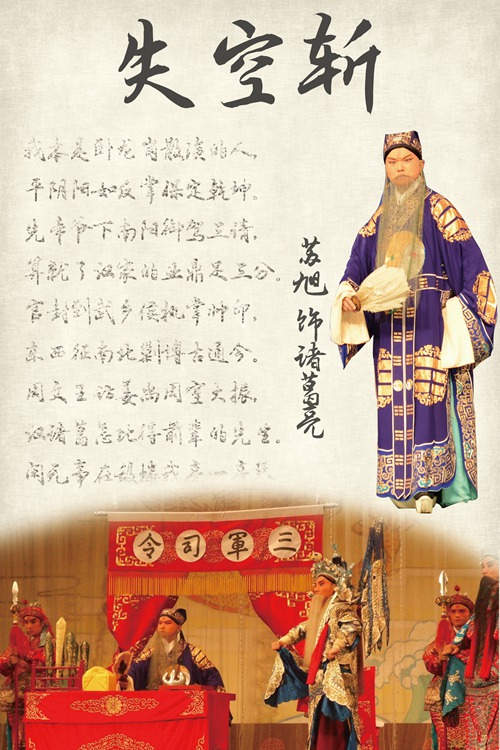 失空斩
我本是卧龙岗散淡的人,
平阴阳如反掌保定乾坤。
先帝爷下南阳御驾三请,
算就了汉家的业鼎足三分。
官封到武乡侯执掌帅印,
东西征南北剿博古通今。
周文王访姜尚周室大振,
汉诸葛怎比得前辈的先生。
闲无事在敌楼我亮一亮
苏旭 饰 诸葛亮
三軍司令